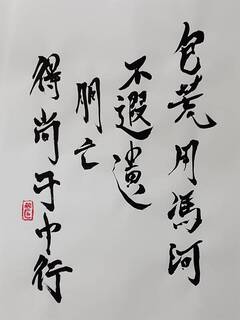 包荒用馮河
不遐遺
朋亡
得尚于中行